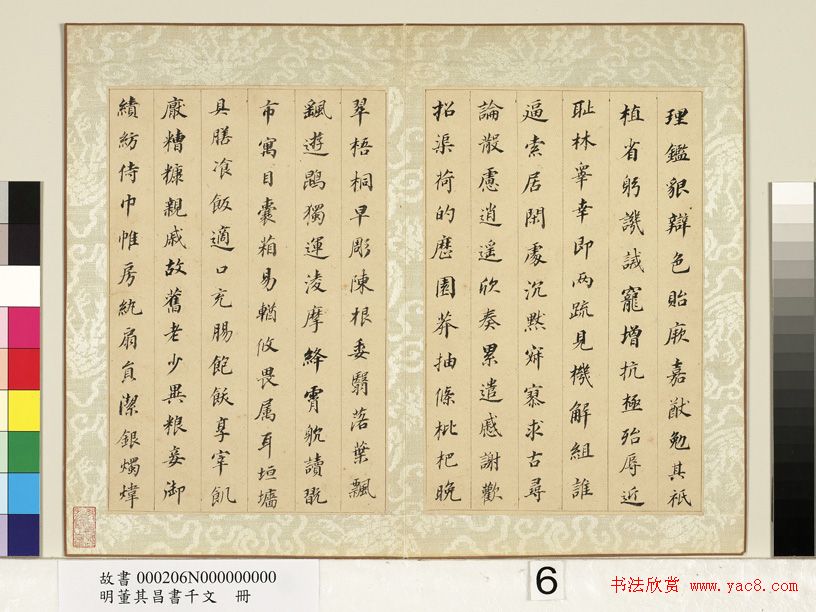 理鑑貌辯色貽厥嘉猷勉其祇
植省躬譏誡寵增抗極殆辱近
耻林睾幸即两疏見機解組誰
逼索居閑處沉默寂寥求古尋
論散慮逍遥欣奏累遣慼謝歡
招渠荷的歷園莽抽條枇杷晚
翠梧桐早彫陳根委翳落葉飄
飖遊鵾獨運淩摩絳霄躭讀翫
市寓目囊箱易輶攸畏属耳垣墻
具膳飡飯適口充腸飽飫享宰飢
厭糟糠親戚故舊老少異粮妾御
績紡侍巾帷房紈扇員潔銀燭煒
故書 000206N000000000
明董其昌書千文 冊
6
书法欣赏 www.yac8.com